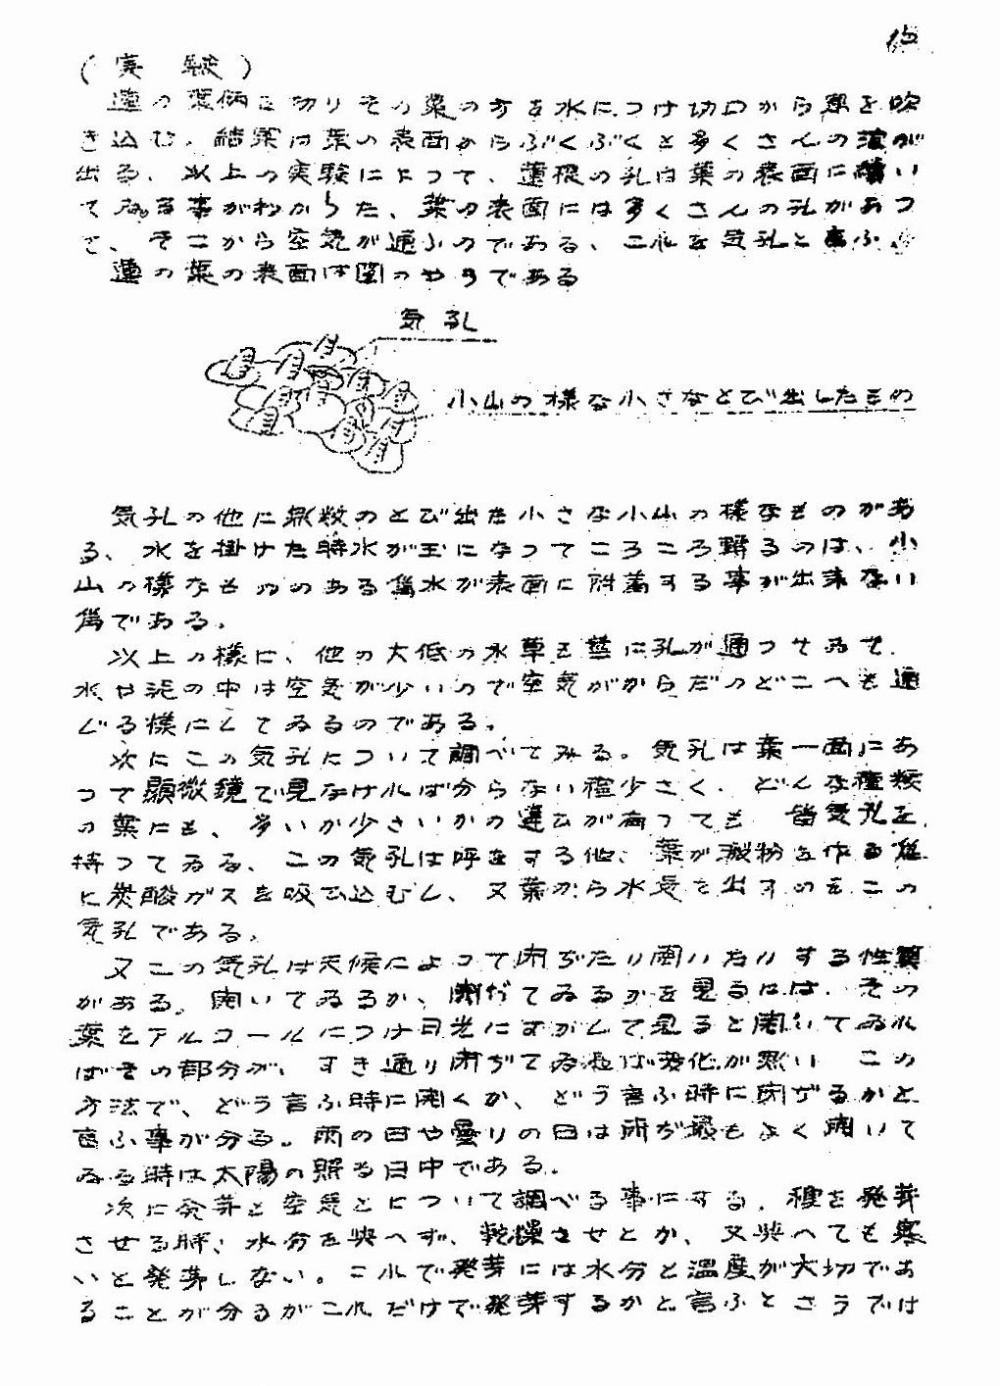 15
(実験)
蓮の葉柄を切りその葉の方を水につけ切口から息を吹
き込む。結果は葉の表面からぶくぶくと多くさんの泡が
出る、以上の実験によつて、蓮根の孔は葉の表面に続い
てゐる事がわかつた、葉の表面には多くさんの孔があつ
て、そこから空気が通ふのである、これを気孔と言ふ。
蓮の葉の表面は図のやうである
気孔
小山の様な小さなとび出したもの
気孔の他に無数のとび出た小さな小山の様なものがあ
る、水を掛けた時水が玉になつてころころ転るのは、小
山の様なもののある為水が表面に附着する事が出来ない
為である。
以上の様に、他の大低の水草も皆に孔が通つてゐて、
水や泥の中は空気が少いので空気がからだのどこへも通
じる様にしてゐるのである。
次にこの気孔について調べてみる。気孔は葉一面にあ
つて顕微鏡で見なければ分らない程少さく、どんな種類
の葉にも、多いか少さいかの違ひが有つても 皆気孔を
持つてゐる、この気孔は呼をする他、葉が澱粉を作る為
に炭酸ガスを吸ひ込むし、又葉から水気を出すのもこの
気孔である。
又この気孔は天候によつて閉ぢたり開いたりする性質
がある。開いてゐるか、閉ぢてゐるかを見るには、その
葉をアルコールにつけ日光にすかして見ると開いてゐれ
ばその部分が、すき通り閉ぢてゐれば変化が無い この
方法で、どう言ふ時に開くか、どう言ふ時に閉ぢるかと
言ふ事が分る。雨の日や曇りの日は閉ぢ最もよく開いて
ゐる時は太陽の照る日中である。
次に発芽と空気とについて調べる事にする、種を発芽
させる時、水分を与へず、乾燥させとか、又与へても寒
いと発芽しない。これで発芽には水分と温度が大切であ
ることが分るがこれだけで発芽するかと言ふとさうでは